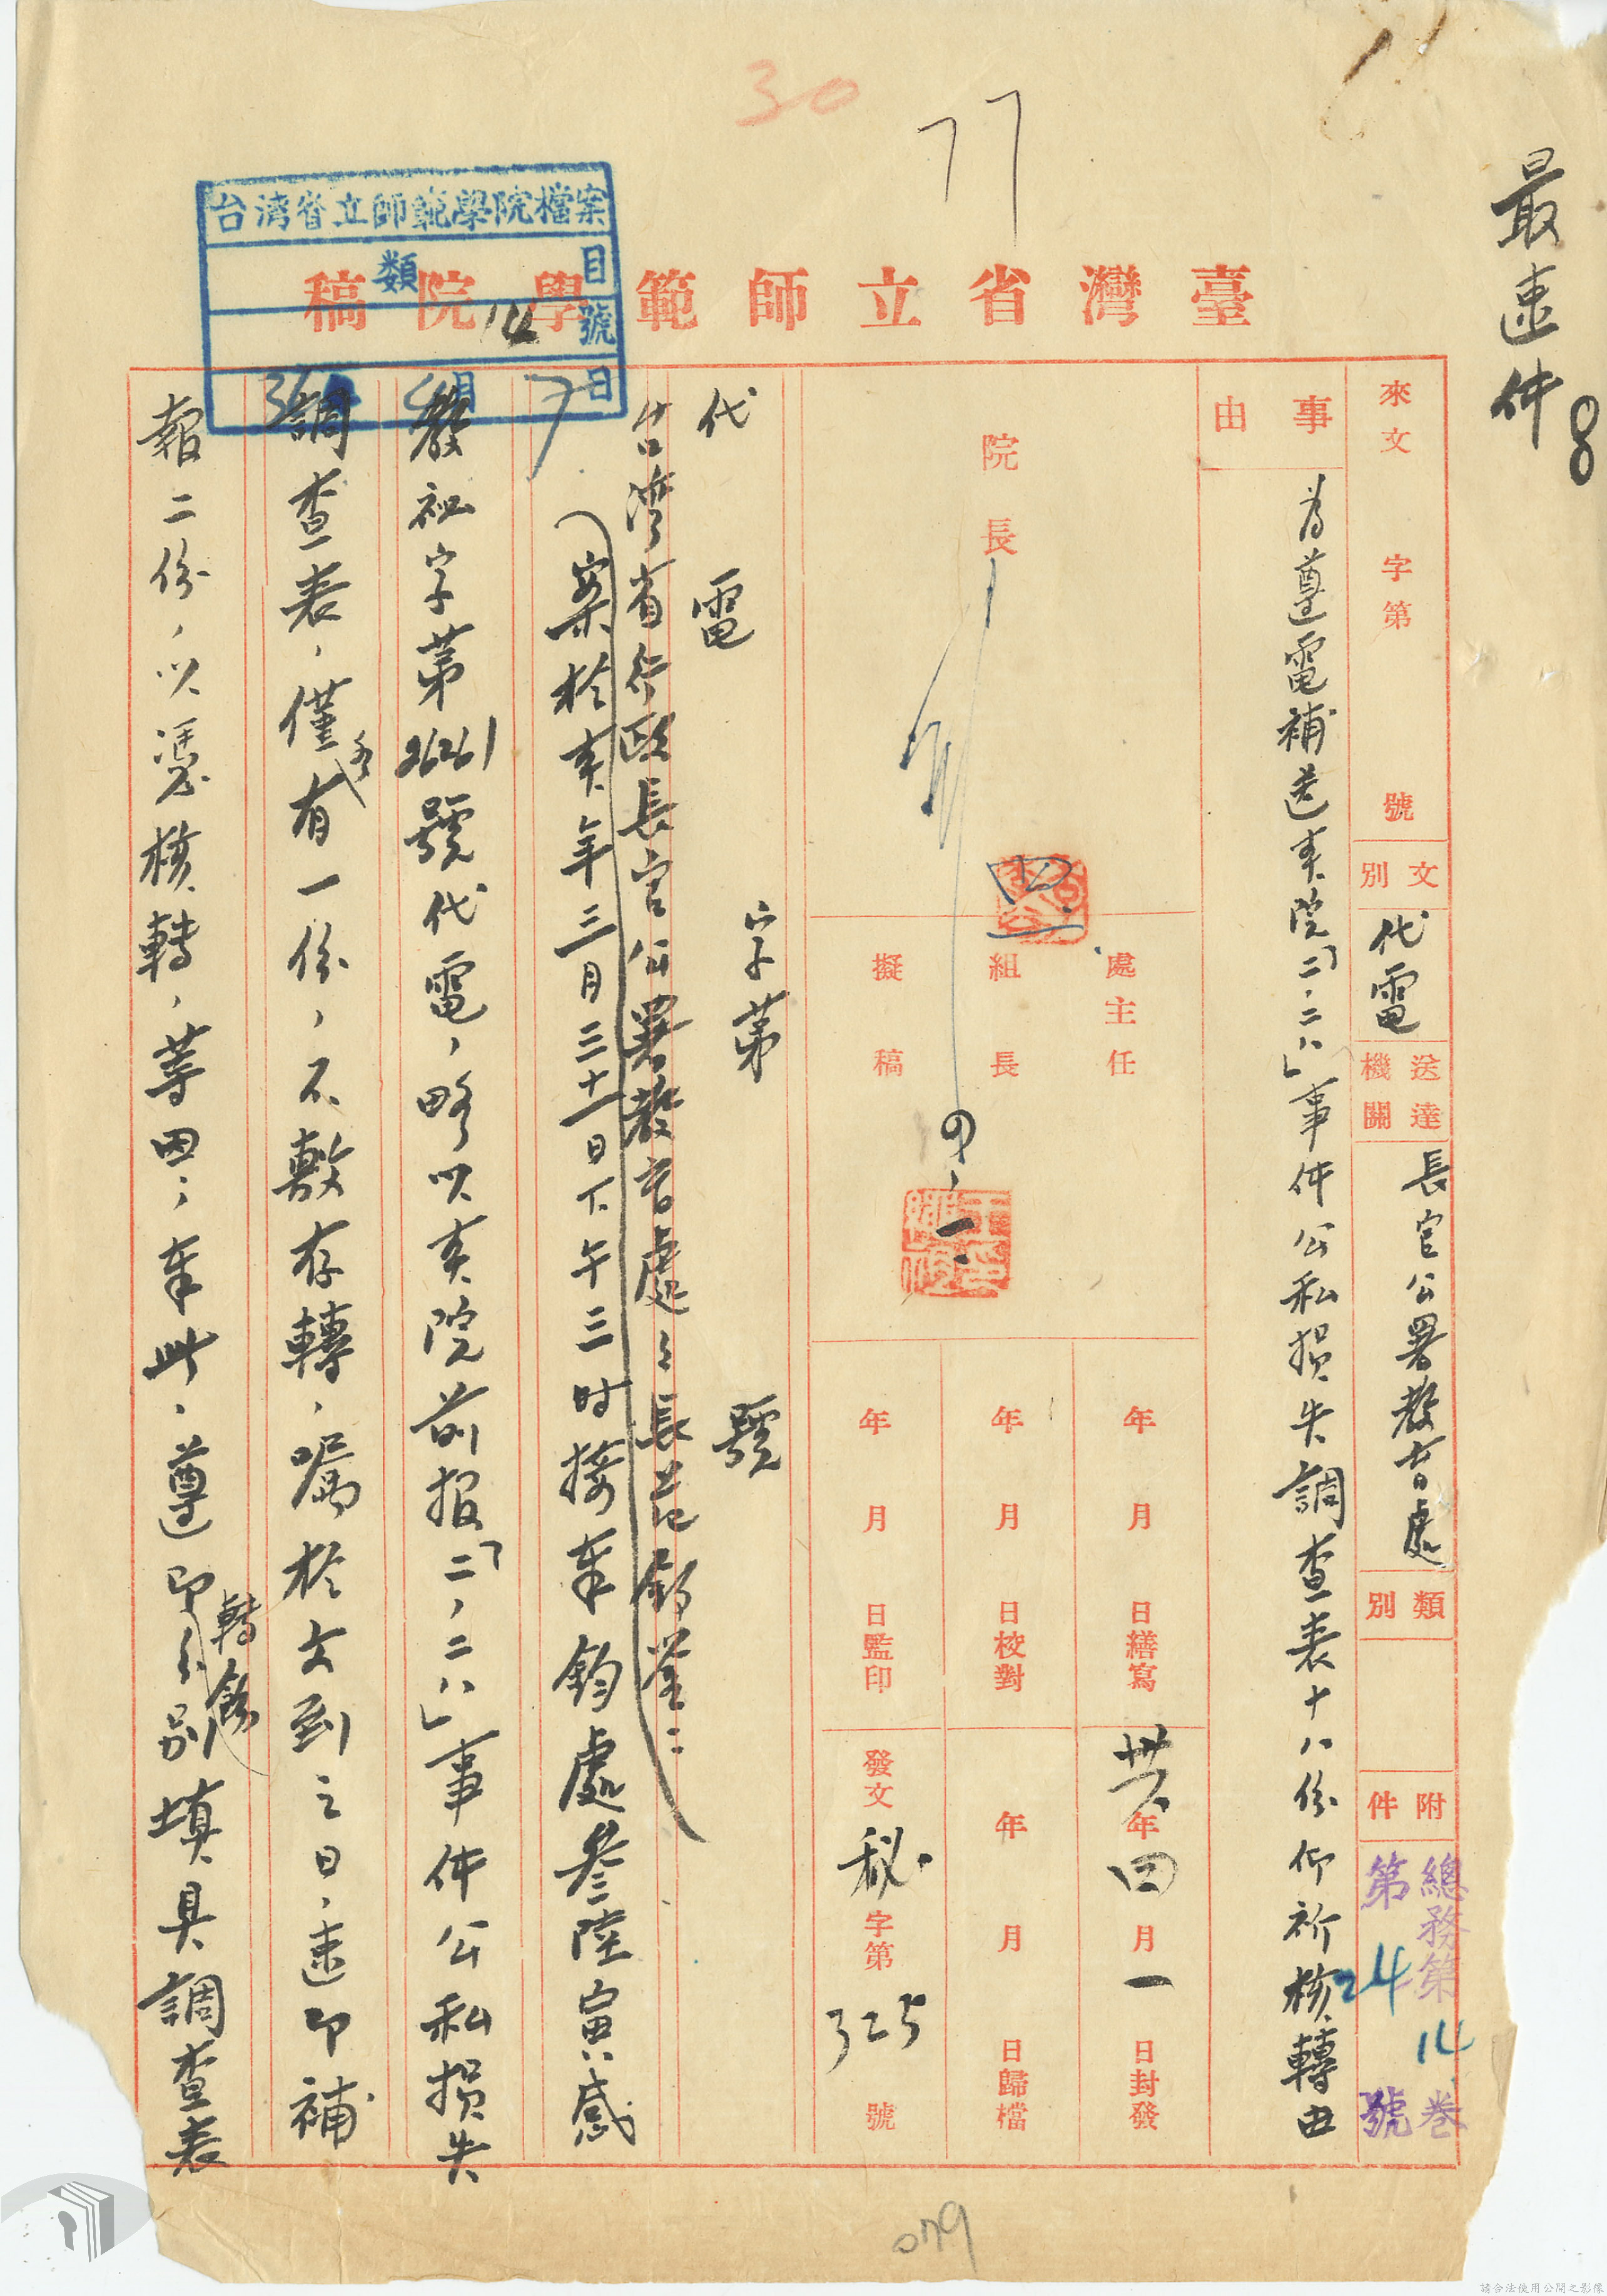 最速件
8
30
77
臺灣省立師範學院稿
台湾省立師範學院檔案
類目
14號
36 4月7日
來文 字第 號
文別 代電
送達機關 長官公署教育處
類別
附件
總務第14卷
第24號
事由
為遵電補送本院「二、二八」事件公私損失調查表十八份仰祈核轉由
院長
四
處主任
組長
擬稿
四、一
年月日繕寫
年月日校對
年月日監印
卅六年四月一日封發
年月日歸檔
發文秘字第325號
代電 字第 號
台湾省行政長官公署教育處々長范鈞鑒：
案於本年三月三十一日下午三时接奉鈞處叁陸寅感
教秘字第26261號代電，略以本院前报「二，二八」事件公私損失
調查表，僅有一份，不敷存轉，嘱於文到之日，速即補
報二份，以憑核轉，等因；奉此，遵即分别填具調查表
079
請合法使用公開之影像